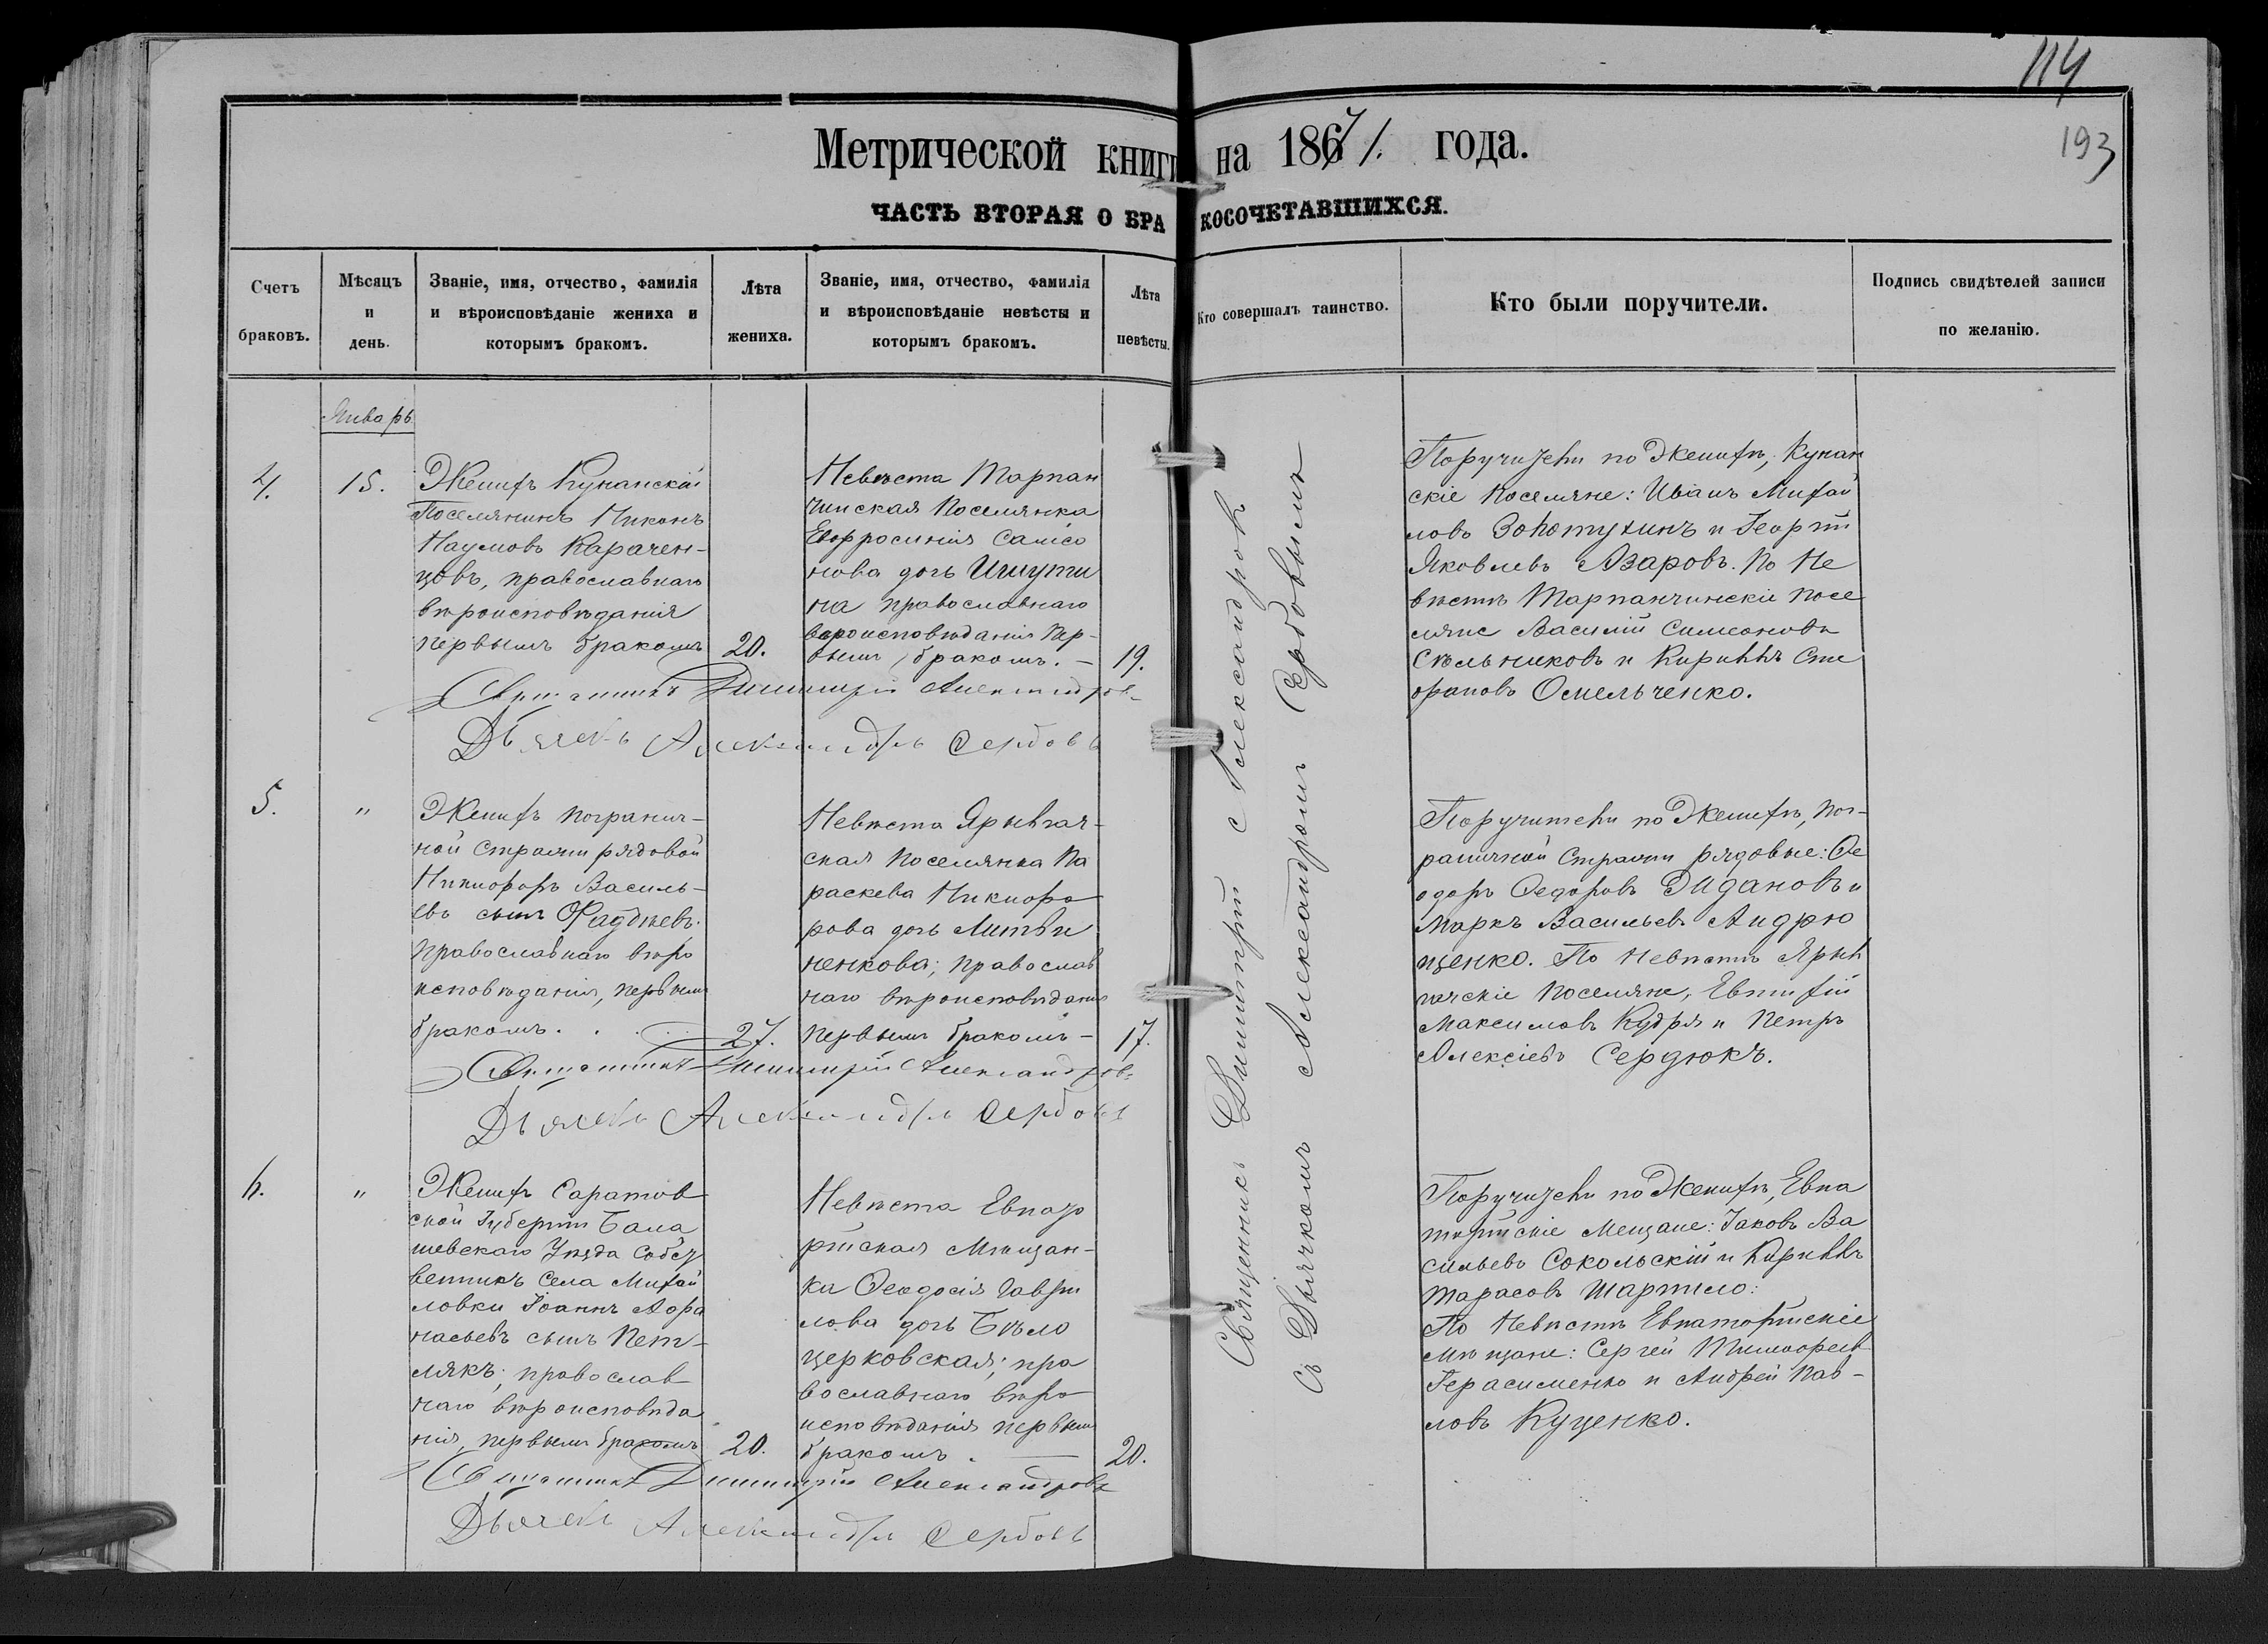 114
193
Метрической книги на 1871. года.
ЧАСТЬ ВТОРАЯ О БРАКОСОЧЕТАВШИХСЯ.
Счетъ браковъ.
Мѣсяцъ и день.
Званіе, имя, отчество, фамилія и вѣроисповѣданіе жениха и которымъ бракомъ.
Лѣта жениха.
Званіе, имя, отчество, фамилія и вѣроисповѣданіе невѣсты и которымъ бракомъ.
Лѣта невѣсты.
Кто совершалъ таинство.
Кто были поручители.
Подпись свидѣтелей записи по желанію.
Январь
4.
15.
Женихъ Кунанскій
Поселянинъ Никонъ
Наумовъ Карачен-
цовъ, православнаго
вѣроисповѣданія
первымъ бракомъ
20.
Невѣста Тарпан
чинская Поселянка
Евфросинія Самсо
нова дочь Шишути
на православнаго
вѣроисповѣданія пер-
вымъ бракомъ. –
19.
Священникъ Димитрій Александров-
Дьячекъ Александръ Сербовъ
Поручители по Женихѣ, Кунан
скіе Поселяне: Иванъ Михай
ловъ Золотухинъ и Георгій
Яковлевъ Азаровъ. По Не
вѣстѣ Тарпанчинскіе посе
ляне Василій Симеоновъ
Скѣльниковъ и Кириллъ Сте
фановъ Омельченко.
5.
"
Женихъ погранич-
ной Стражи рядовой
Никифоръ Василь-
евъ сынъ Фаддѣевъ.
православнаго вѣро
исповѣданія, первымъ
бракомъ. . .
27.
Невѣста Ярылгач-
ская Поселянка Па
раскева Никифо
рова дочь Литви
ненкова; православ
наго вѣроисповѣданія
первымъ бракомъ –
17.
Священникъ Димитрій Александров-
Дьячекъ Александръ Сербовъ
Поручители по Женихѣ, пог-
раничной Стражи рядовые: Ѳе
одоръ Ѳедоровъ Ждановъ и
Маркъ Васильевъ Андрю
щенко. По Невѣстѣ Ярыл
гачскіе Поселяне, Евтихій
Максимовъ Кудря и Петръ
Алексіевъ Сердюкъ.
6.
"
Женихъ Саратов
ской Губерніи Бала
шевскаго Уѣзда Собст
венникъ Села Михай
ловки Іоаннъ Афа
насьевъ сынъ Пет-
лякъ; православ
наго вѣроисповѣда
нія, первымъ бракомъ
20.
Невѣста Евпато
рійская Мѣщан-
ка Ѳеодосія Гаври
лова дочь Бѣло
церковская; пра
вославнаго вѣро
исповѣданія первымъ
бракомъ . —
20.
Священникъ Димитрій Александровъ
Дьячекъ Александръ Сербовъ
Поручители по Женихѣ, Евпа
торійскіе Мещане: Іаковъ Ва
сильевъ Сокольскій и Кириллъ
Тарасовъ Шарпило:
По Невѣстѣ Евпаторійскіе
Мѣщане: Сергей Тимофеев
Герасименко и Андрей Пав-
ловъ Куценко.
Священникъ Димитрій Александровъ
съ Дьячкомъ Александромъ Сербовымъ